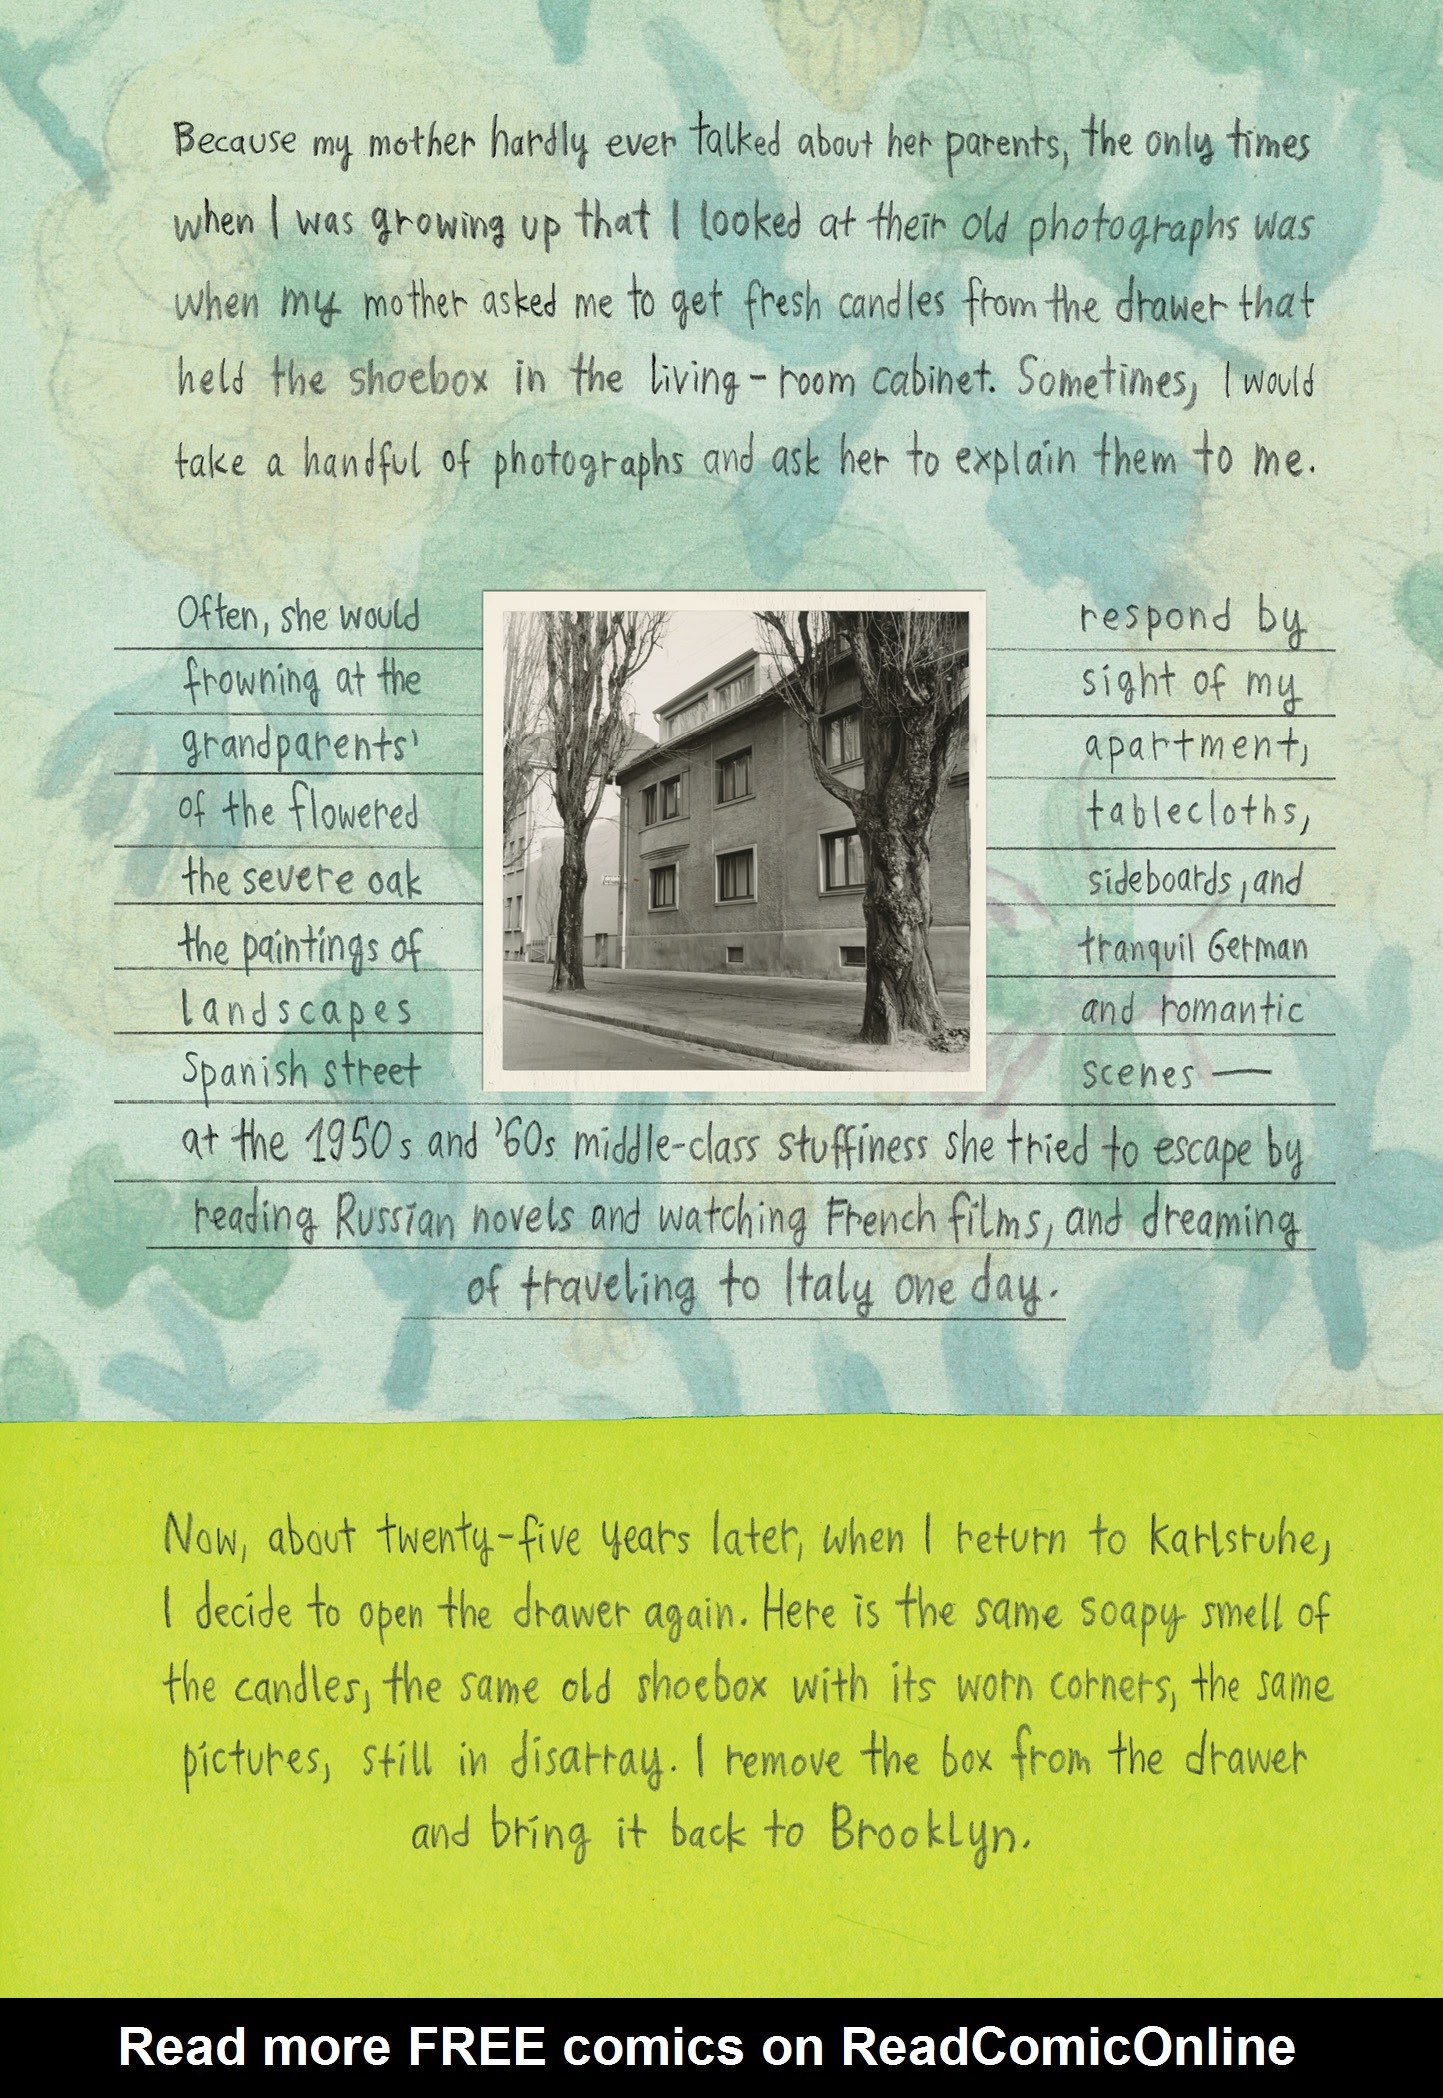 Because my mother hardly ever talked about her parents, the only times
when I was growing up that I looked at their old photographs was
when my mother asked me to get fresh candles from the drawer that
held the shoebox in the living-room cabinet. Sometimes, I would
take a handful of photographs and ask her to explain them to me.
Often, she would respond by
frowning at the sight of my
grandparents' apartment,
of the flowered tablecloths,
the severe oak sideboards, and
the paintings of tranquil German
landscapes and romantic
Spanish street scenes —
at the 1950s and '60s middle-class stuffiness she tried to escape by
reading Russian novels and watching French films, and dreaming
of traveling to Italy one day.
Now, about twenty-five years later, when I return to Karlsruhe,
I decide to open the drawer again. Here is the same soapy smell of
the candles, the same old shoebox with its worn corners, the same
pictures, still in disarray. I remove the box from the drawer
and bring it back to Brooklyn.
Read more FREE comics on ReadComicOnline